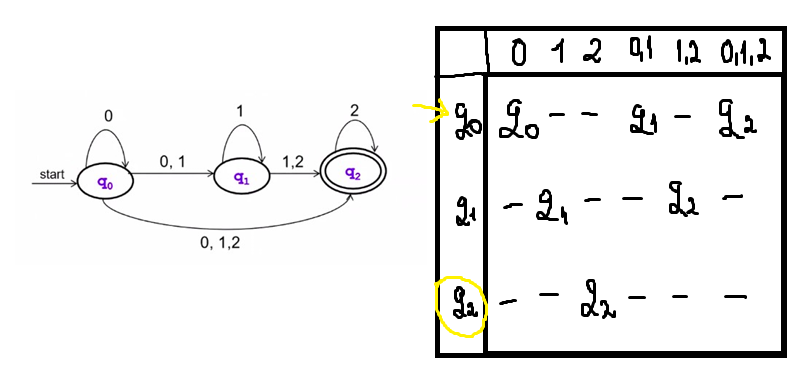 0 1 2
0, 1 1,2
start q₀ q₁ q₂
0, 1,2
0 1 2 0,1 1,2 0,1,2
q₀ q₀ - - q₁ - q₂
q₁ - q₁ - - q₂ -
q₂ - - q₂ - - -